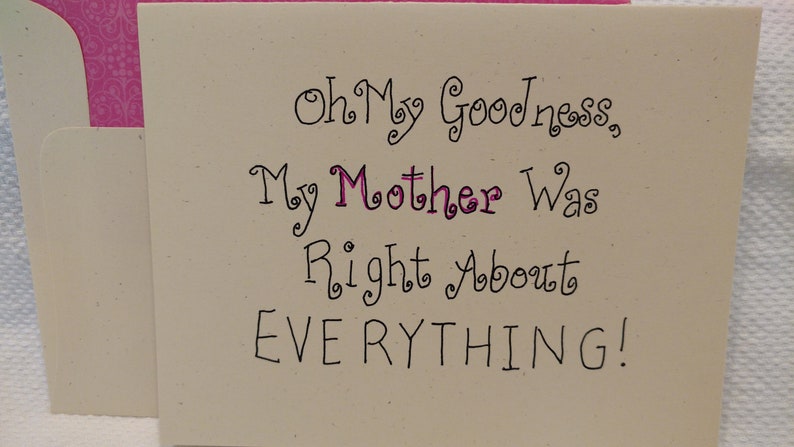 Oh My Goodness,
My Mother Was
Right About
EVERYTHING!